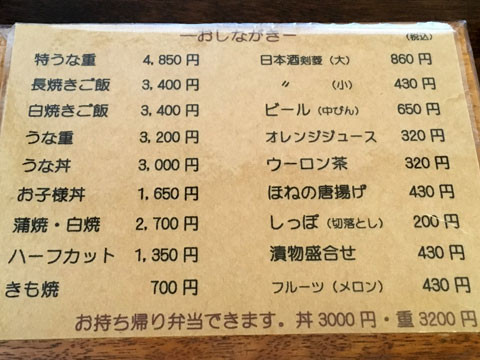 ーおしながきー (税込)
特うな重 4,850円
長焼きご飯 3,400円
白焼きご飯 3,400円
うな重 3,200円
うな丼 3,000円
お子様丼 1,650円
蒲焼・白焼 2,700円
ハーフカット 1,350円
きも焼 700円
日本酒剣菱(大) 860円
〃 (小) 430円
ビール(中びん) 650円
オレンジジュース 320円
ウーロン茶 320円
ほねの唐揚げ 430円
しっぽ(切落とし) 200円
漬物盛合せ 430円
フルーツ(メロン) 430円
お持ち帰り弁当できます。丼3000円・重3200円